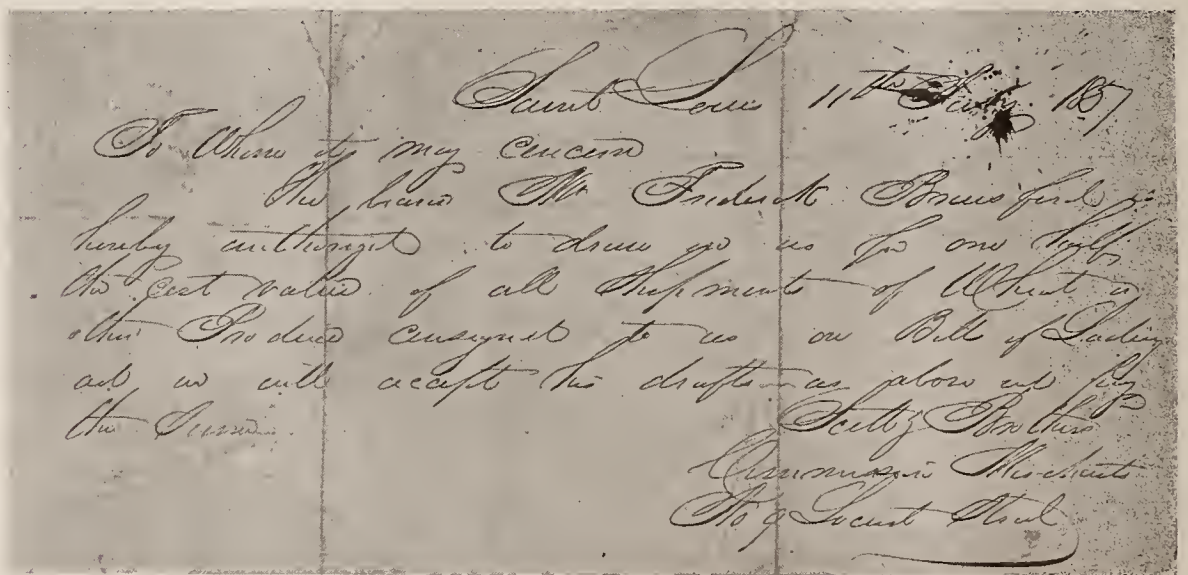 Saint Louis 11th July 1857
To Whom it may concern
The bearer Mr Frederick Brunsford is
hereby authorized to draw on us for one half
the Cost value of all Shipments of Wheat or
other Produce consigned to us on Bill of Lading
and we will accept his drafts as above and pay
the Same.
Brothers
Commission Merchants
No 9 Locust Street